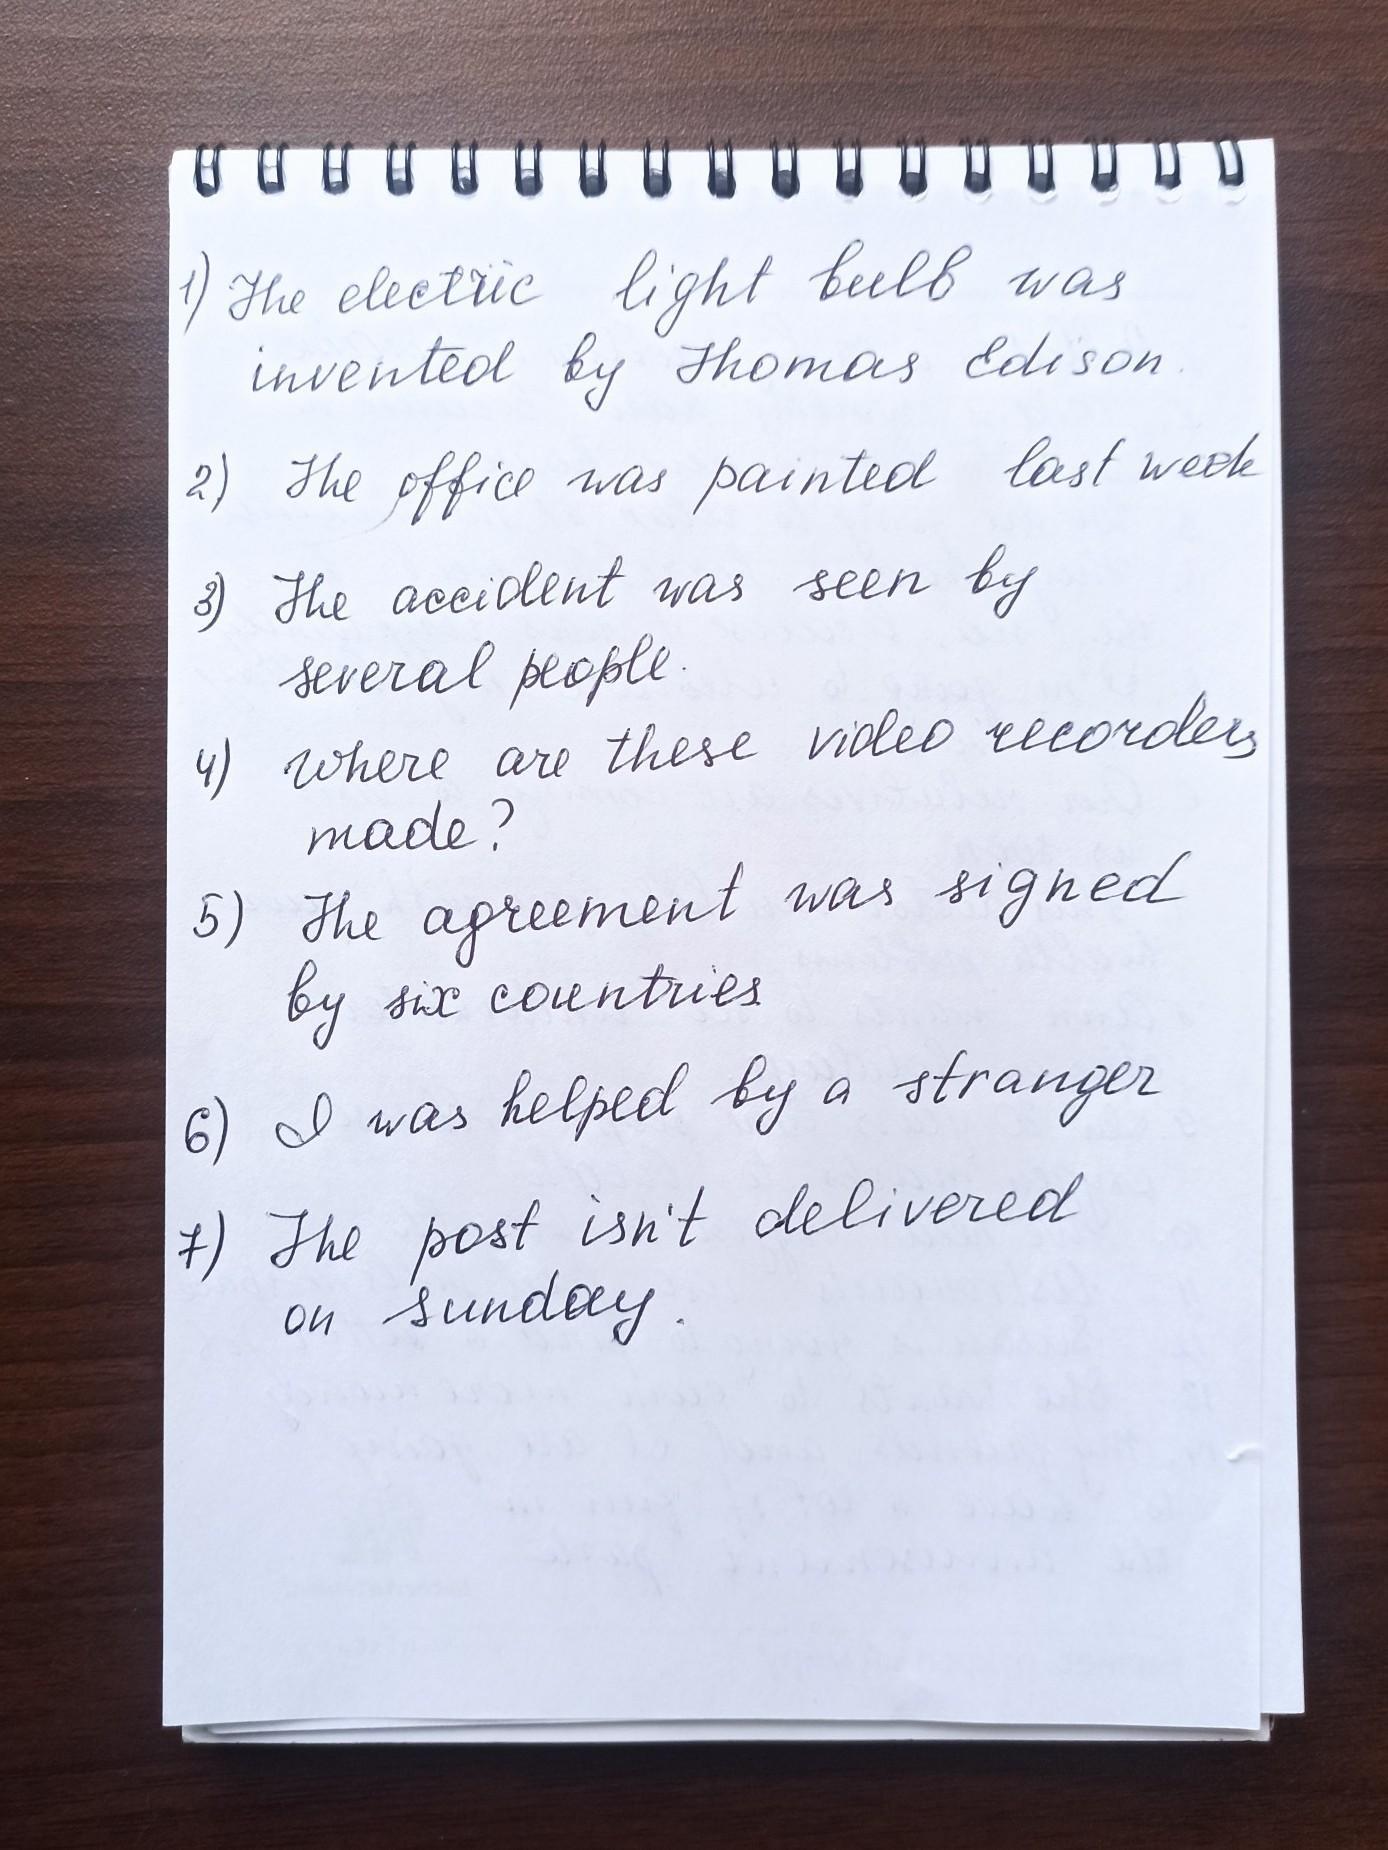 1) The electric light bulb was
invented by Thomas Edison.
2) The office was painted last week
3) The accident was seen by
several people.
4) Where are these video recorders
made?
5) The agreement was signed
by six countries
6) I was helped by a stranger
7) The post isn't delivered
on sunday.